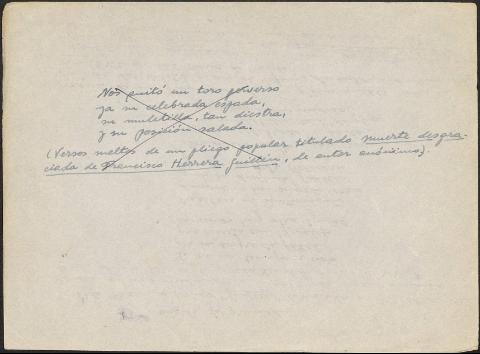 Nos quitó un toro perverso
ya su celebrada espada,
su muletilla, tan diestra,
y su posición salada.
(Versos sueltos de un pliego popular titulado muerte desgra-
ciada de Francisco Herrera Guillén, de autor anónimo).